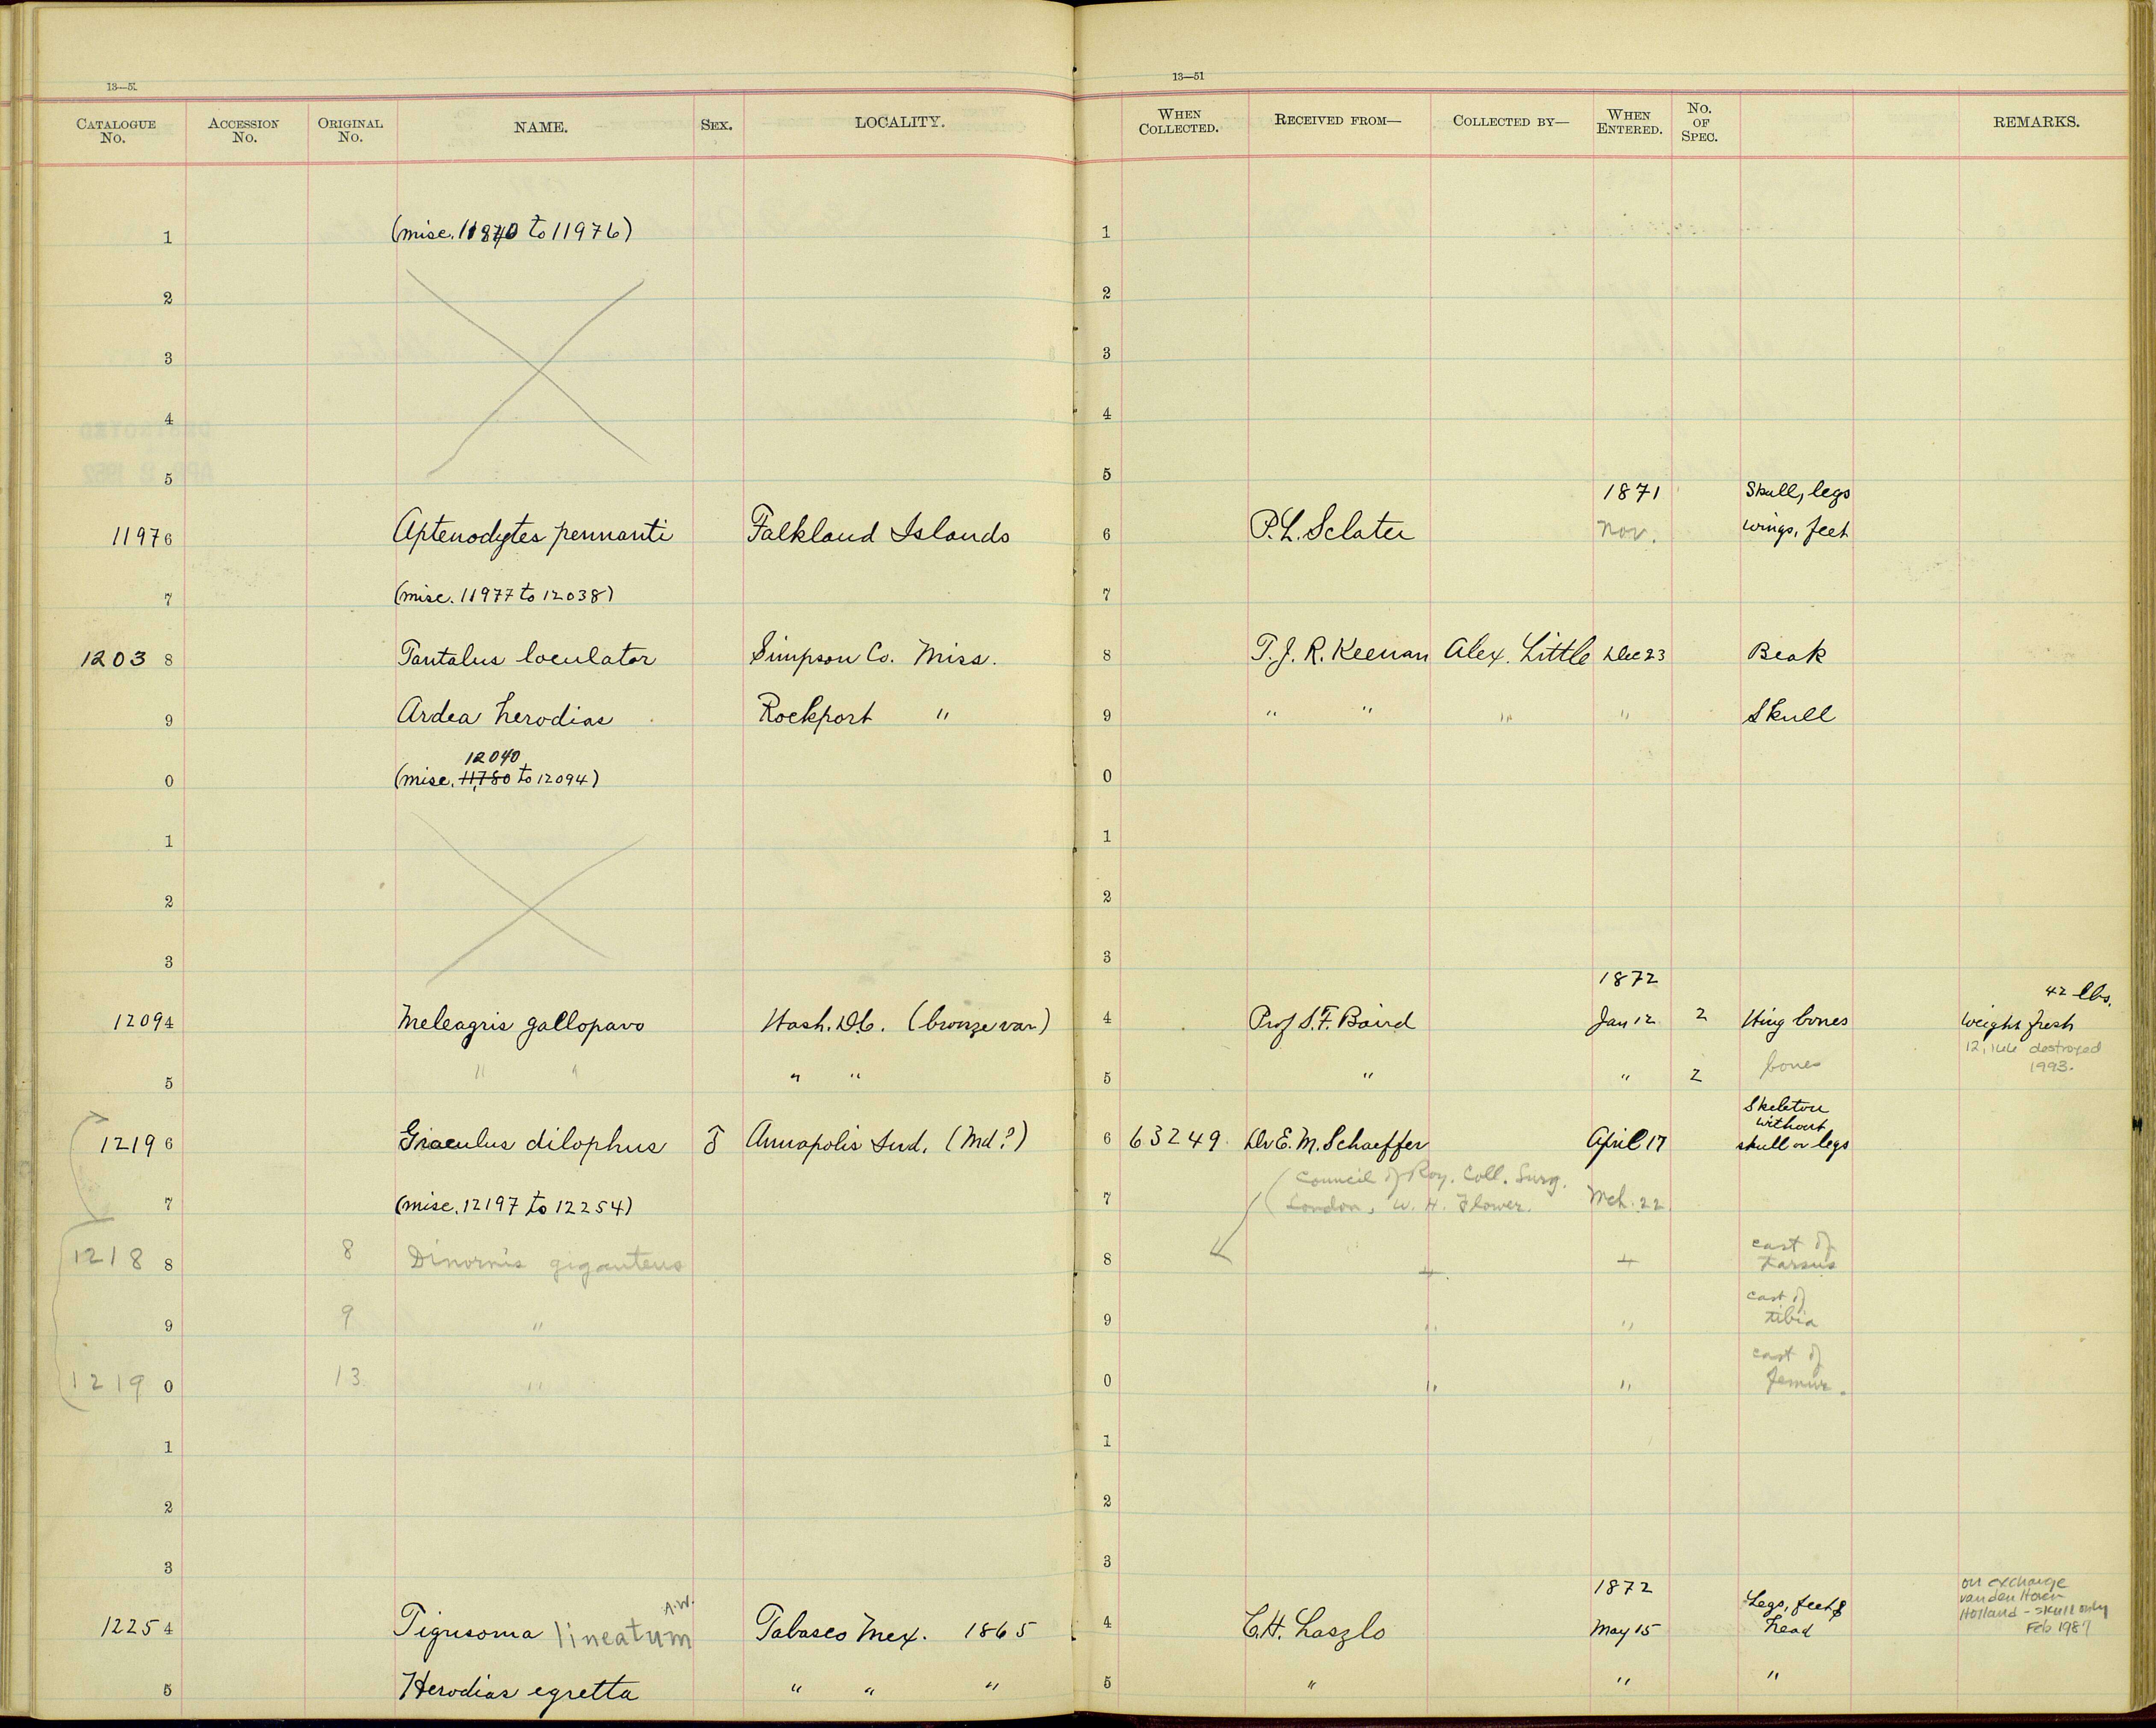 13—51
CATALOGUE No. ACCESSION No. ORIGINAL No. NAME. SEX. LOCALITY.
1 (misc. 11840 to 11976)
2
3
4
5
11976 Aptenodytes pennanti Falkland Islands
7 (misc. 11977 to 12038)
12038 Tantalus loculator Simpson Co. Miss.
9 Ardea herodias Rockport "
12040
0 (misc. 11,780 to 12094)
1
2
3
12094 Meleagris gallopavo Wash. D.C. (bronze var)
5 " " " "
12196 Graculus dilophus ♂ Annapolis Ind. (Md?)
7 (misc. 12197 to 12254)
12188 8 Dinornis giganteus
9 9 "
12190 13 "
1
2
3
A.W.
12254 Tigrisoma lineatum Tabasco Mex. 1865
5 Herodias egretta " " "
13—51
WHEN COLLECTED. RECEIVED FROM— COLLECTED BY— WHEN ENTERED. No. OF SPEC. REMARKS.
1
2
3
4
5
1871 Skull, legs
6 P. L. Sclater Nov. wings, feet
7
8 T. J. R. Keenan Alex. Little Dec 23 Beak
9 " " " " Skull
0
1
2
3
1872
42 lbs.
4 Prof S. F. Baird Jan 12 2 Wing bones weight fresh
12,166 destroyed
1993.
5 " " 2 bones
Skeleton
without
6 63249 Dr E. M. Schaeffer April 17 skull or legs
(Council of Roy. Coll. Surg.
7 London. W. H. Flower. Mch. 22
cast of
8 tarsus
cast of
9 " " tibia
cast of
0 " " femur.
1
2
3
on exchange
van den Hoven
1872 Legs, feet &
Holland - skull only
4 C. H. Laszlo May 15 head Feb 1989
5 " " "